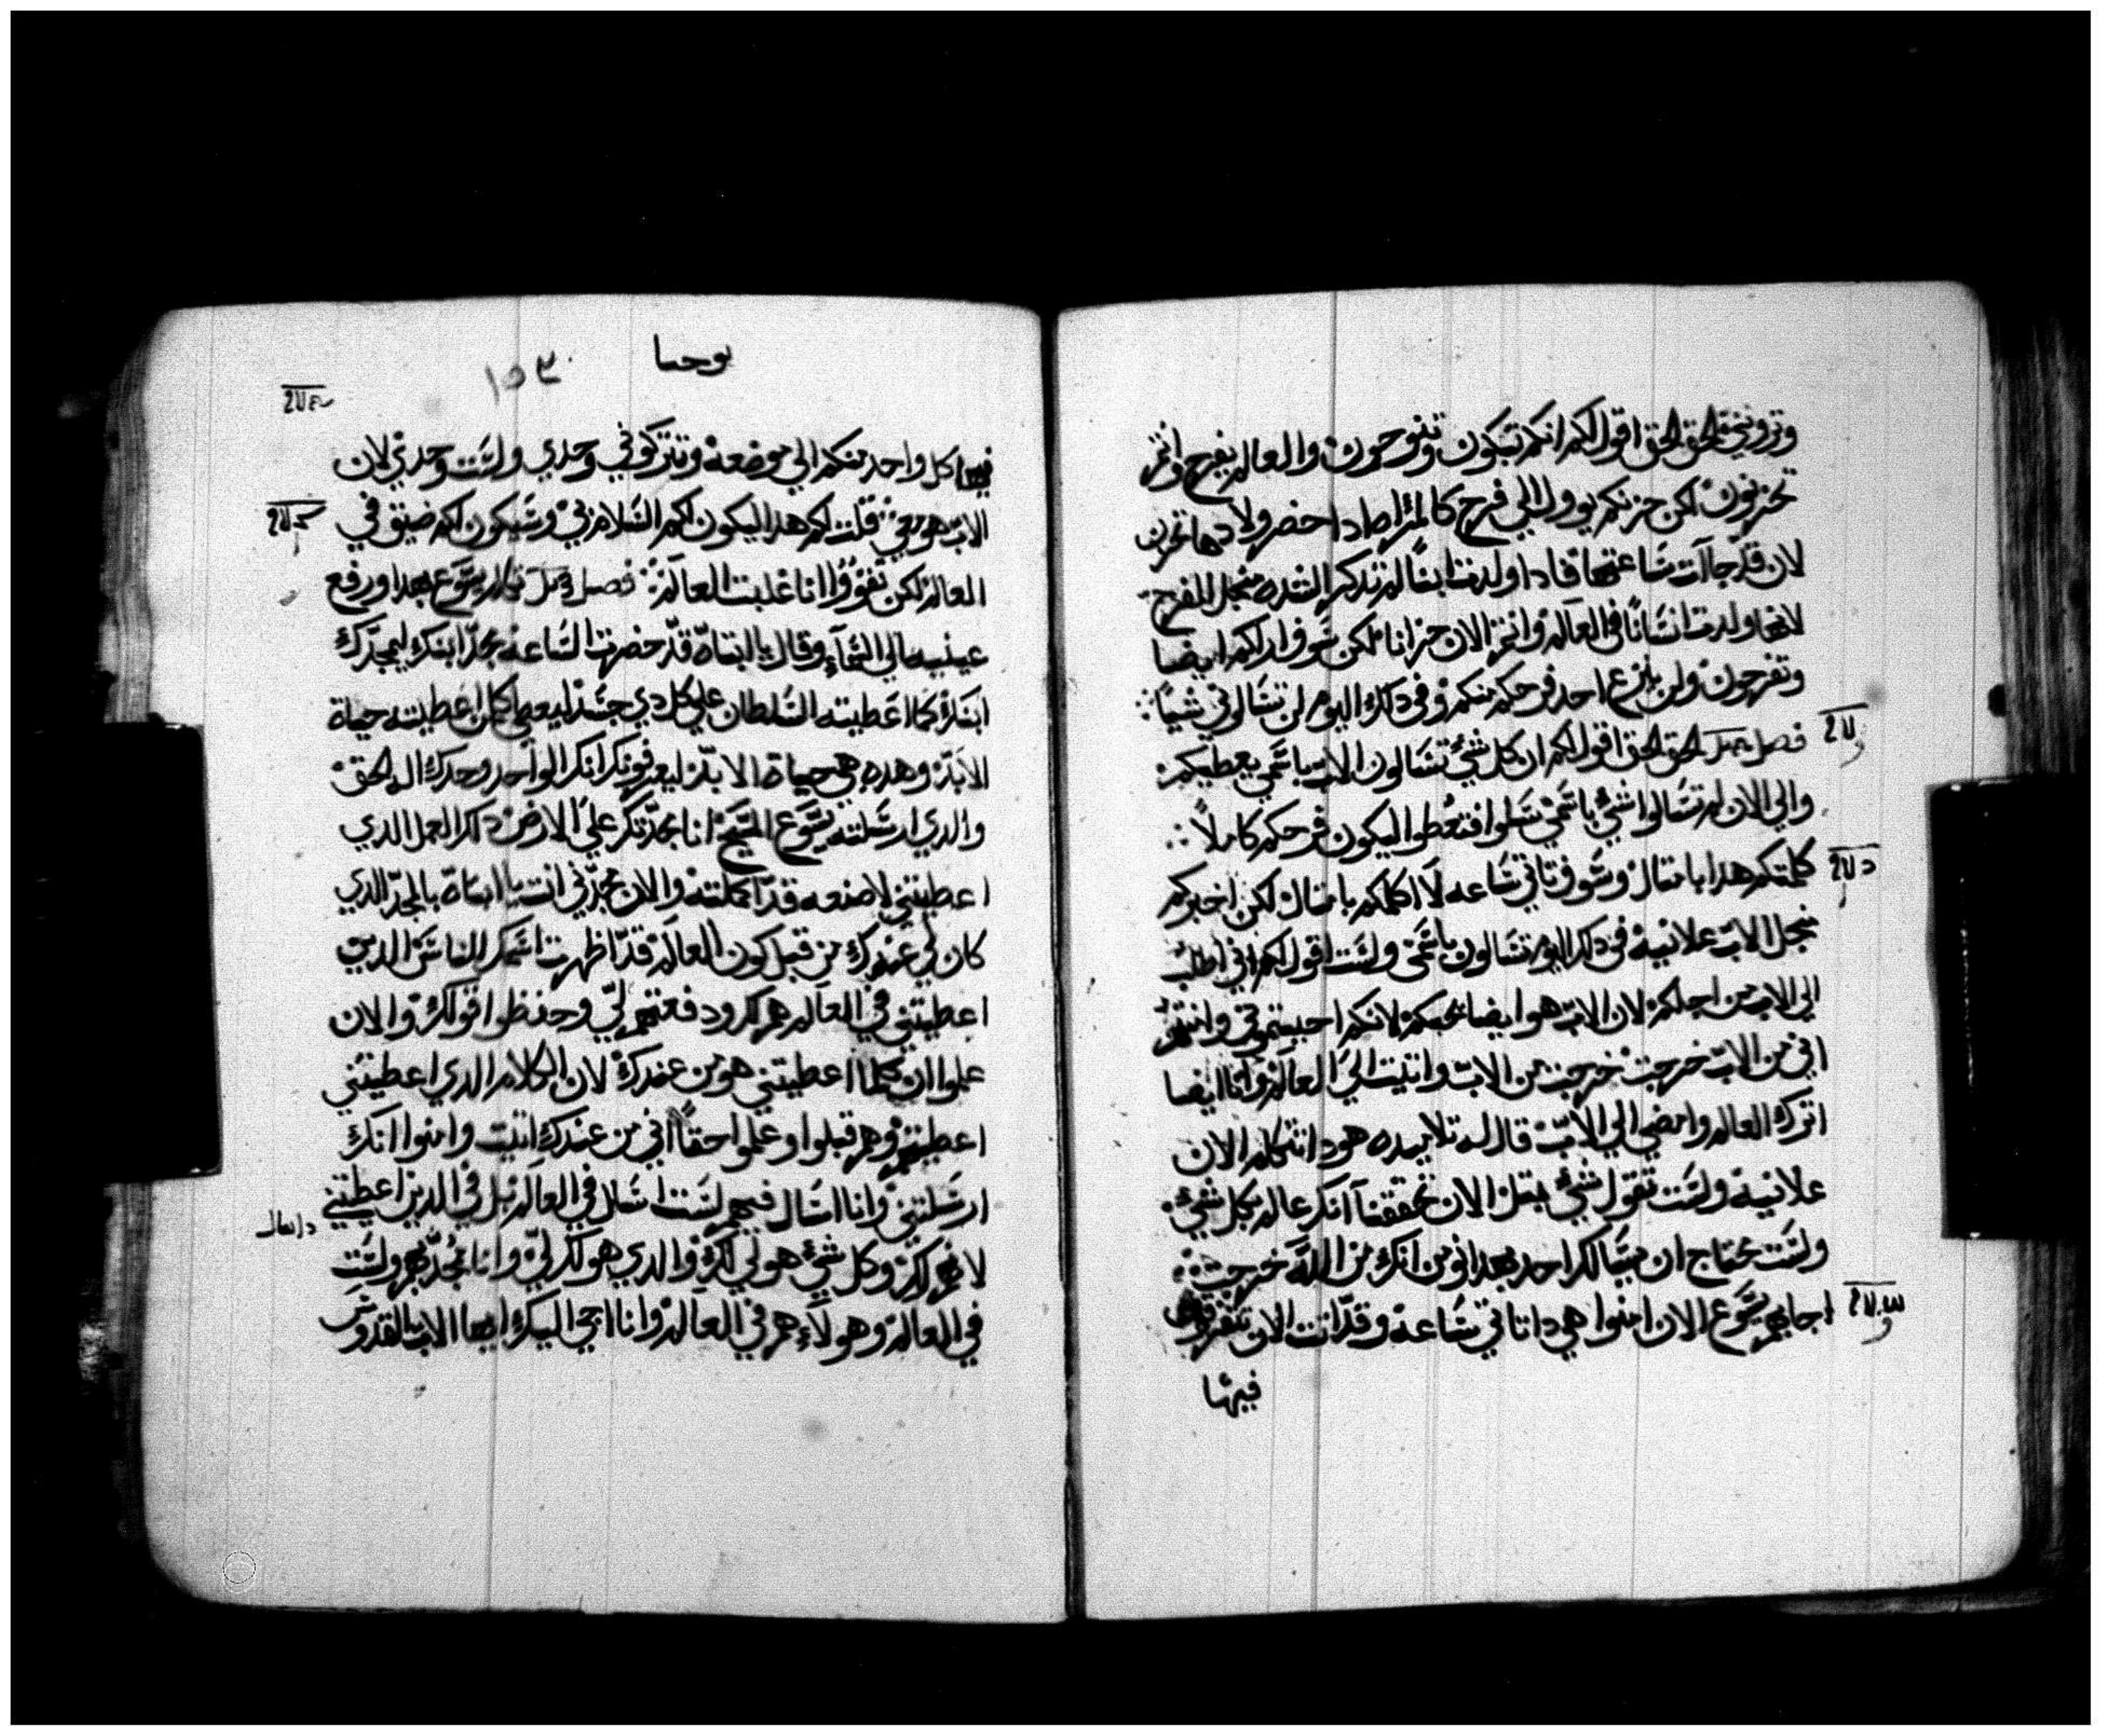 وتروني الحق الحق اقول لكم انكم تبكون وتنوحون والعالم يفرح وانتم
تحزنون لكن حزنكم يوول الي فرح كالمراه ادا حضر ولادها تحزن
لان قد جاآت ساعتها فادا ولدت ابنًا لم تدكر الشده منجل الفرح
لانها ولدت انسانًا في العالم وانتم الان حزانا لكن سوف اراكم ايضا
وتفرحون ولن ينزع احد فرحكم منكم وفي دلك اليوم لن تسالوني شيًا
فصل الحق الحق اقول لكم ان كل شي تسالون الاب باسمي يعطيكم
والي الان لم تسالوا شي باسمي سلوا فتعطوا ليكون فرحكم كاملاً
كلمتكم هدا بامتال وسوف تاتي ساعه لا اكلمكم بامتال لكن اخبركم
منجل الاب علانية في دلك اليوم تسالون باسمي ولست اقول لكم اني اطلب
الي الاب من اجلكم لان الاب هو ايضا يحبكم لانكم احببتموني وامنتم
اني من الاب خرجت خرجت من الاب واتيت الي العالم وانا ايضا
اترك العالم وامضي الي الاب قال له تلاميده هودا تتكلم الان
علانية ولست تقول شي بمتل الان تحققنا انك عالم بكل شي
ولست تحتاج ان يسالك احد بهدا نومن انك من الله خرجت
اجابهم يسوع الان امنوا هي دا تاتي ساعة وقد اتت الان تتفرقون
فيها
يوحنا
١٥٣
فيها كل واحد منكم الي موضعه وتتركوني وحدي ولست وحدي لان
الاب هو معي قلت لكم هدا ليكون لكم السلام بي وسيكون لكم ضيق في
العالم لكن تقووا انا غلبت العالم فصل يسوع بهدا ورفع
عينيه الي السمآ وقال يا ابتاه قد حضرت الساعة مجد ابنك ليمجدك
ابنك كما اعطيته السلطان علي كل دي جسد ليعطي كلمن اعطيته حياة
الابد وهده هي حياة الابد ليعرفونك انك الواحد وحدك اله الحق
والدي ارسلته يسوع المسيح انا مجدتك علي الارض دلك العمل الدي
اعطيتني لاصنعه قد اكملته والان مجدني انت يا ابتاه بالمجد الدي
كان لي عندك من قبل كون العالم قد اظهرت اسمك للناس الدين
اعطيتني في العالم هم لك ودفعتهم لي وحفظوا قولك والان
علموا ان كلما اعطيتني هو من عندك لان الكلام الدي اعطيتني
اعطيتهم وهم قبلوا وعلموا حقاً اني من عندك اتيت وامنوا انك
ارسلتني وانا اسال فيهم لست اسال في العالم بل في الدين اعطيتني
لانهم لك وكل شي هو لي لك والدي هو لك لي وانا ممجد بهم ولست
في العالم وهولآء هم في العالم وانا اجي اليك ايها الاب القدوس